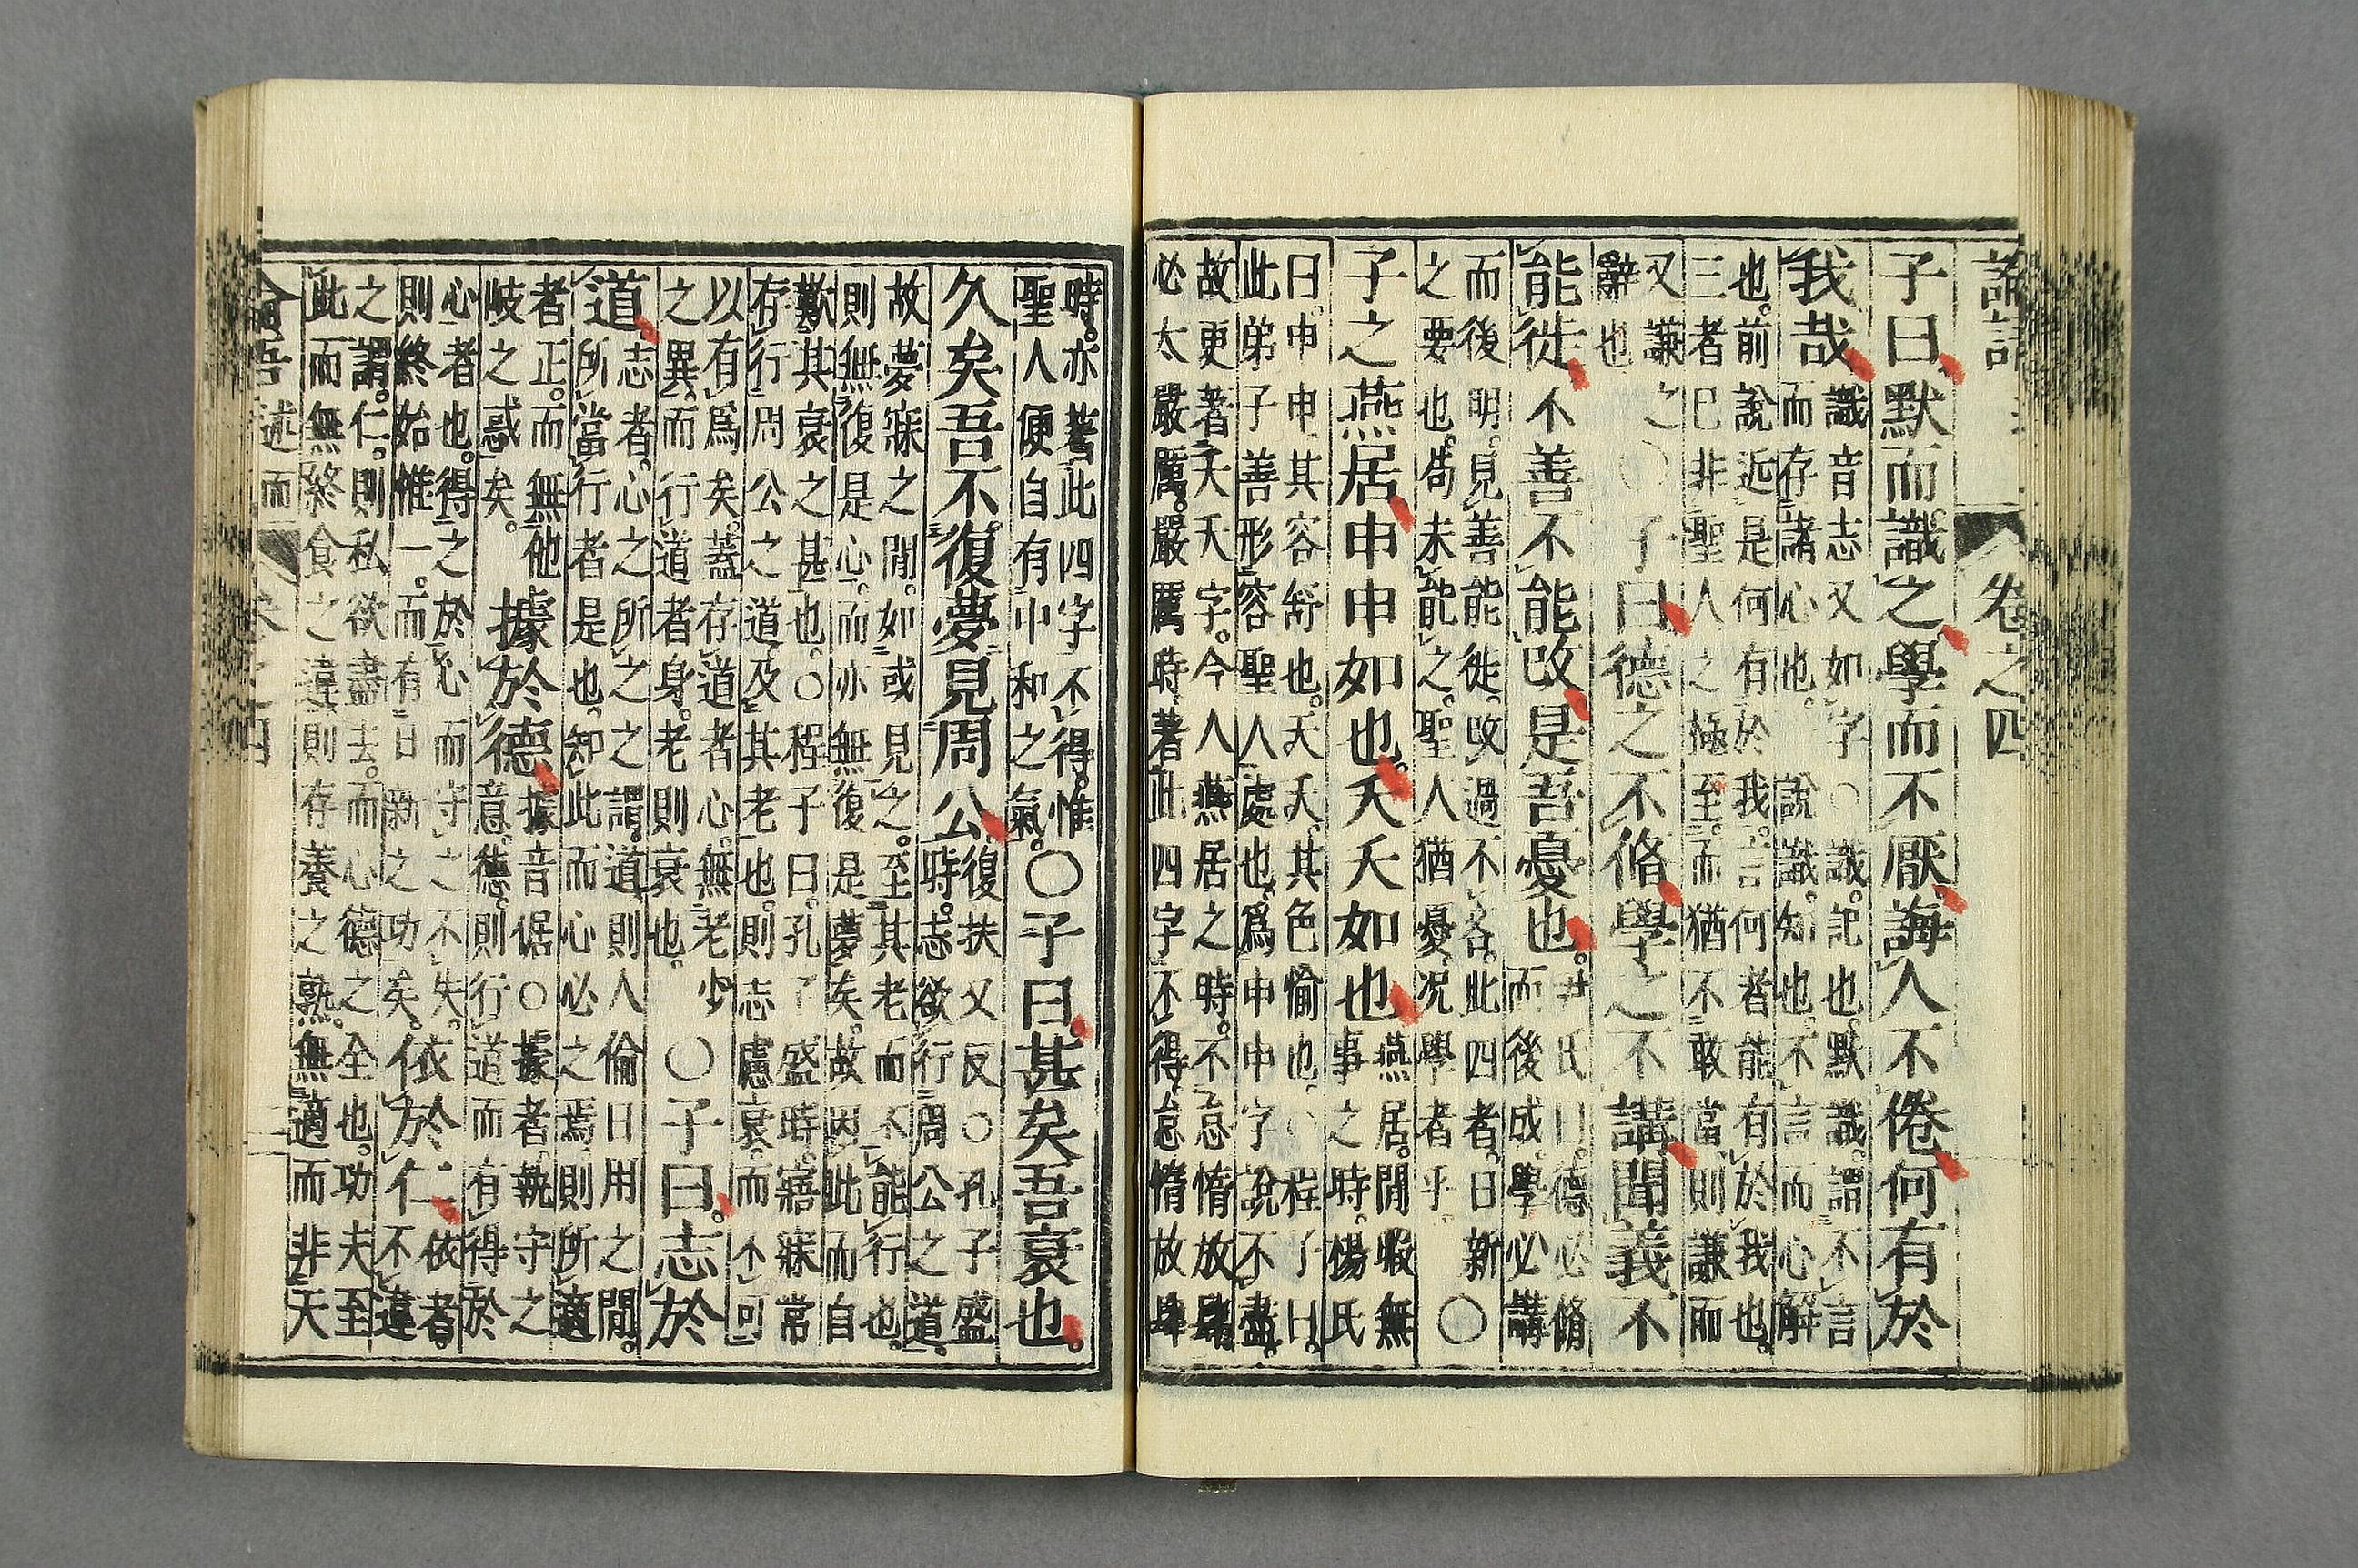 論語 卷之四
子曰默而識之學而不厭誨人不倦何有於
我哉識音志又如字○識。記也。默識。謂不言
而存諸心也。說識。知也。不言而心解
也。前說近是何有於我。言何者能有於我也。
三者已非聖人之極至。而猶不敢當。則謙而
又謙之
辭也
○子曰德之不脩學之不講聞義不
能徙不善不能改是吾憂也。尹氏曰。德必脩
而後成。學必講
而後明。見善能徙。改過不吝。此四者。日新
之要也。苟未能之。聖人猶憂。況學者乎
○
子之燕居申申如也。夭夭如也燕居。閒暇無
事之時。楊氏
曰。申申其容舒也。夭夭。其色愉也。○程子曰。
此弟子善形容聖人處也。爲申申字說不盡。
故更著夭夭字。今人燕居之時。不怠惰放肆
必太嚴厲。嚴厲時。著此四字不得。怠惰放肆
時。亦著此四字不得。惟
聖人便自有中和之氣。
○子曰。甚矣吾衰也。
久矣吾不復夢見周公復扶又反○孔子盛
時。志欲行周公之道。
故夢寐之閒。如或見之。至其老而不能行也。
則無復是心。而亦無復是夢矣。故因此而自
歎其衰之甚也。○程子曰。孔子盛時。寤寐常
存行周公之道。及其老也。則志慮衰。而不可
以有爲矣。蓋存道者心。無老少
之異。而行道者身。老則衰也。
○子曰。志於
道。志者。心之所之之謂。道。則人倫日用之閒。
所當行者是也。知此而心必之焉。則所適
者正。而無他
岐之惑矣。
據於德據音倨○據者。執守之
意。德。則行道而有得於
心者也。得之於心而守之不失。
則終始惟一。而有日新之功矣。
依於仁依者。
不違
之謂。仁。則私欲盡去。而心德之全也。功夫至
此而無終食之違。則存養之熟。無適而非天
論語 述而 卷之四 二